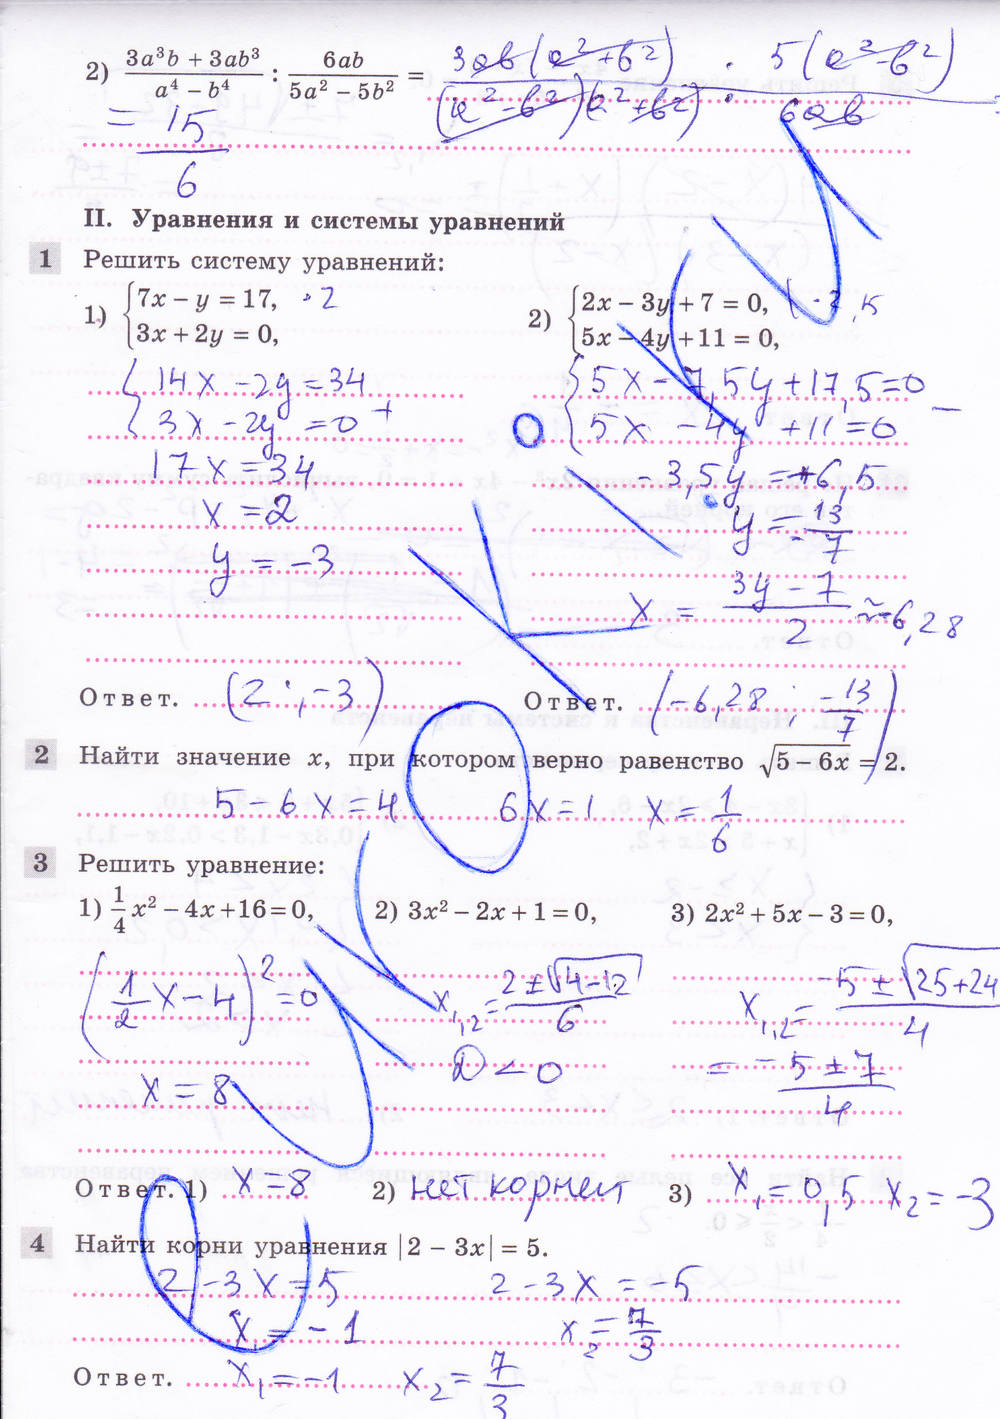 2) (3a³b + 3ab³)/(a⁴ − b⁴) : 6ab/(5a² − 5b²) = 3ab(a²+b²)/((a²−b²)(a²+b²)) · 5(a²−b²)/6ab
= 15/6
II. Уравнения и системы уравнений
1 Решить систему уравнений:
1) {7x − y = 17, ·2
3x + 2y = 0,
2) {2x − 3y + 7 = 0, | ·2,5
5x − 4y + 11 = 0,
{14x − 2y = 34
3x − 2y = 0 +
17x = 34
x = 2
y = −3
{5x − 7,5y + 17,5 = 0
5x − 4y + 11 = 0 −
− 3,5y = +6,5
y = −13/7
x = (3y − 7)/2 ≈ −6,28
Ответ. (2 ; −3)
Ответ. (−6,28 ; −13/7)
2 Найти значение x, при котором верно равенство √(5 − 6x) = 2.
5 − 6x = 4 6x = 1 x = 1/6
3 Решить уравнение:
1) 1/4 x² − 4x + 16 = 0, 2) 3x² − 2x + 1 = 0, 3) 2x² + 5x − 3 = 0,
(1/2 x − 4)² = 0
x = 8
x₁,₂ = (2 ± √(4−12))/6
D < 0
x₁,₂ = (−5 ± √(25+24))/4
= (−5 ± 7)/4
Ответ. 1) x = 8 2) нет корней 3) x₁ = 0,5 x₂ = −3
4 Найти корни уравнения |2 − 3x| = 5.
2 − 3x = 5 2 − 3x = −5
x₁ = −1 x₂ = 7/3
Ответ. x₁ = −1 x₂ = 7/3